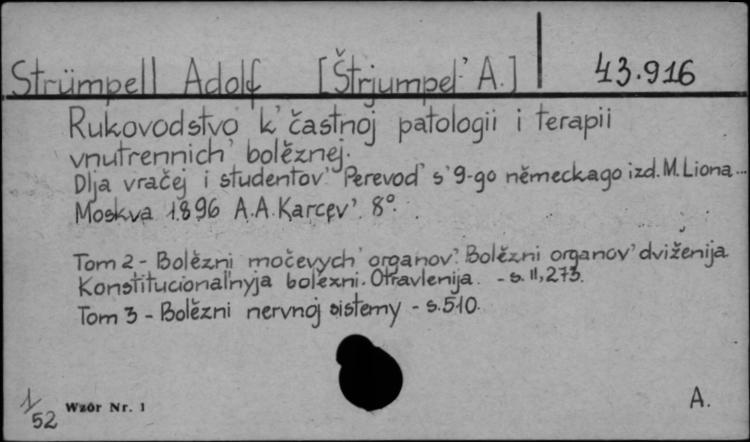 Strümpell Adolf [Štrjumpel' A.] 43.916
Rukovodstvo k' častnoj patologii i terapii
vnutrennich' bolěznej.
Dlja vračej i studentov' Perevod' s' 9-go německago izd. M. Liona...
Moskva 1896 A.A. Karcev'. 8°.
Tom 2 - Bolězni močevych' organov'. Bolězni organov' dviženija
Konstitucional'nyja bolězni. Otravlenija. - s. II, 273.
Tom 3 - Bolězni nervnoj sistemy - s. 510.
1/52 Wzór Nr. 1 A.